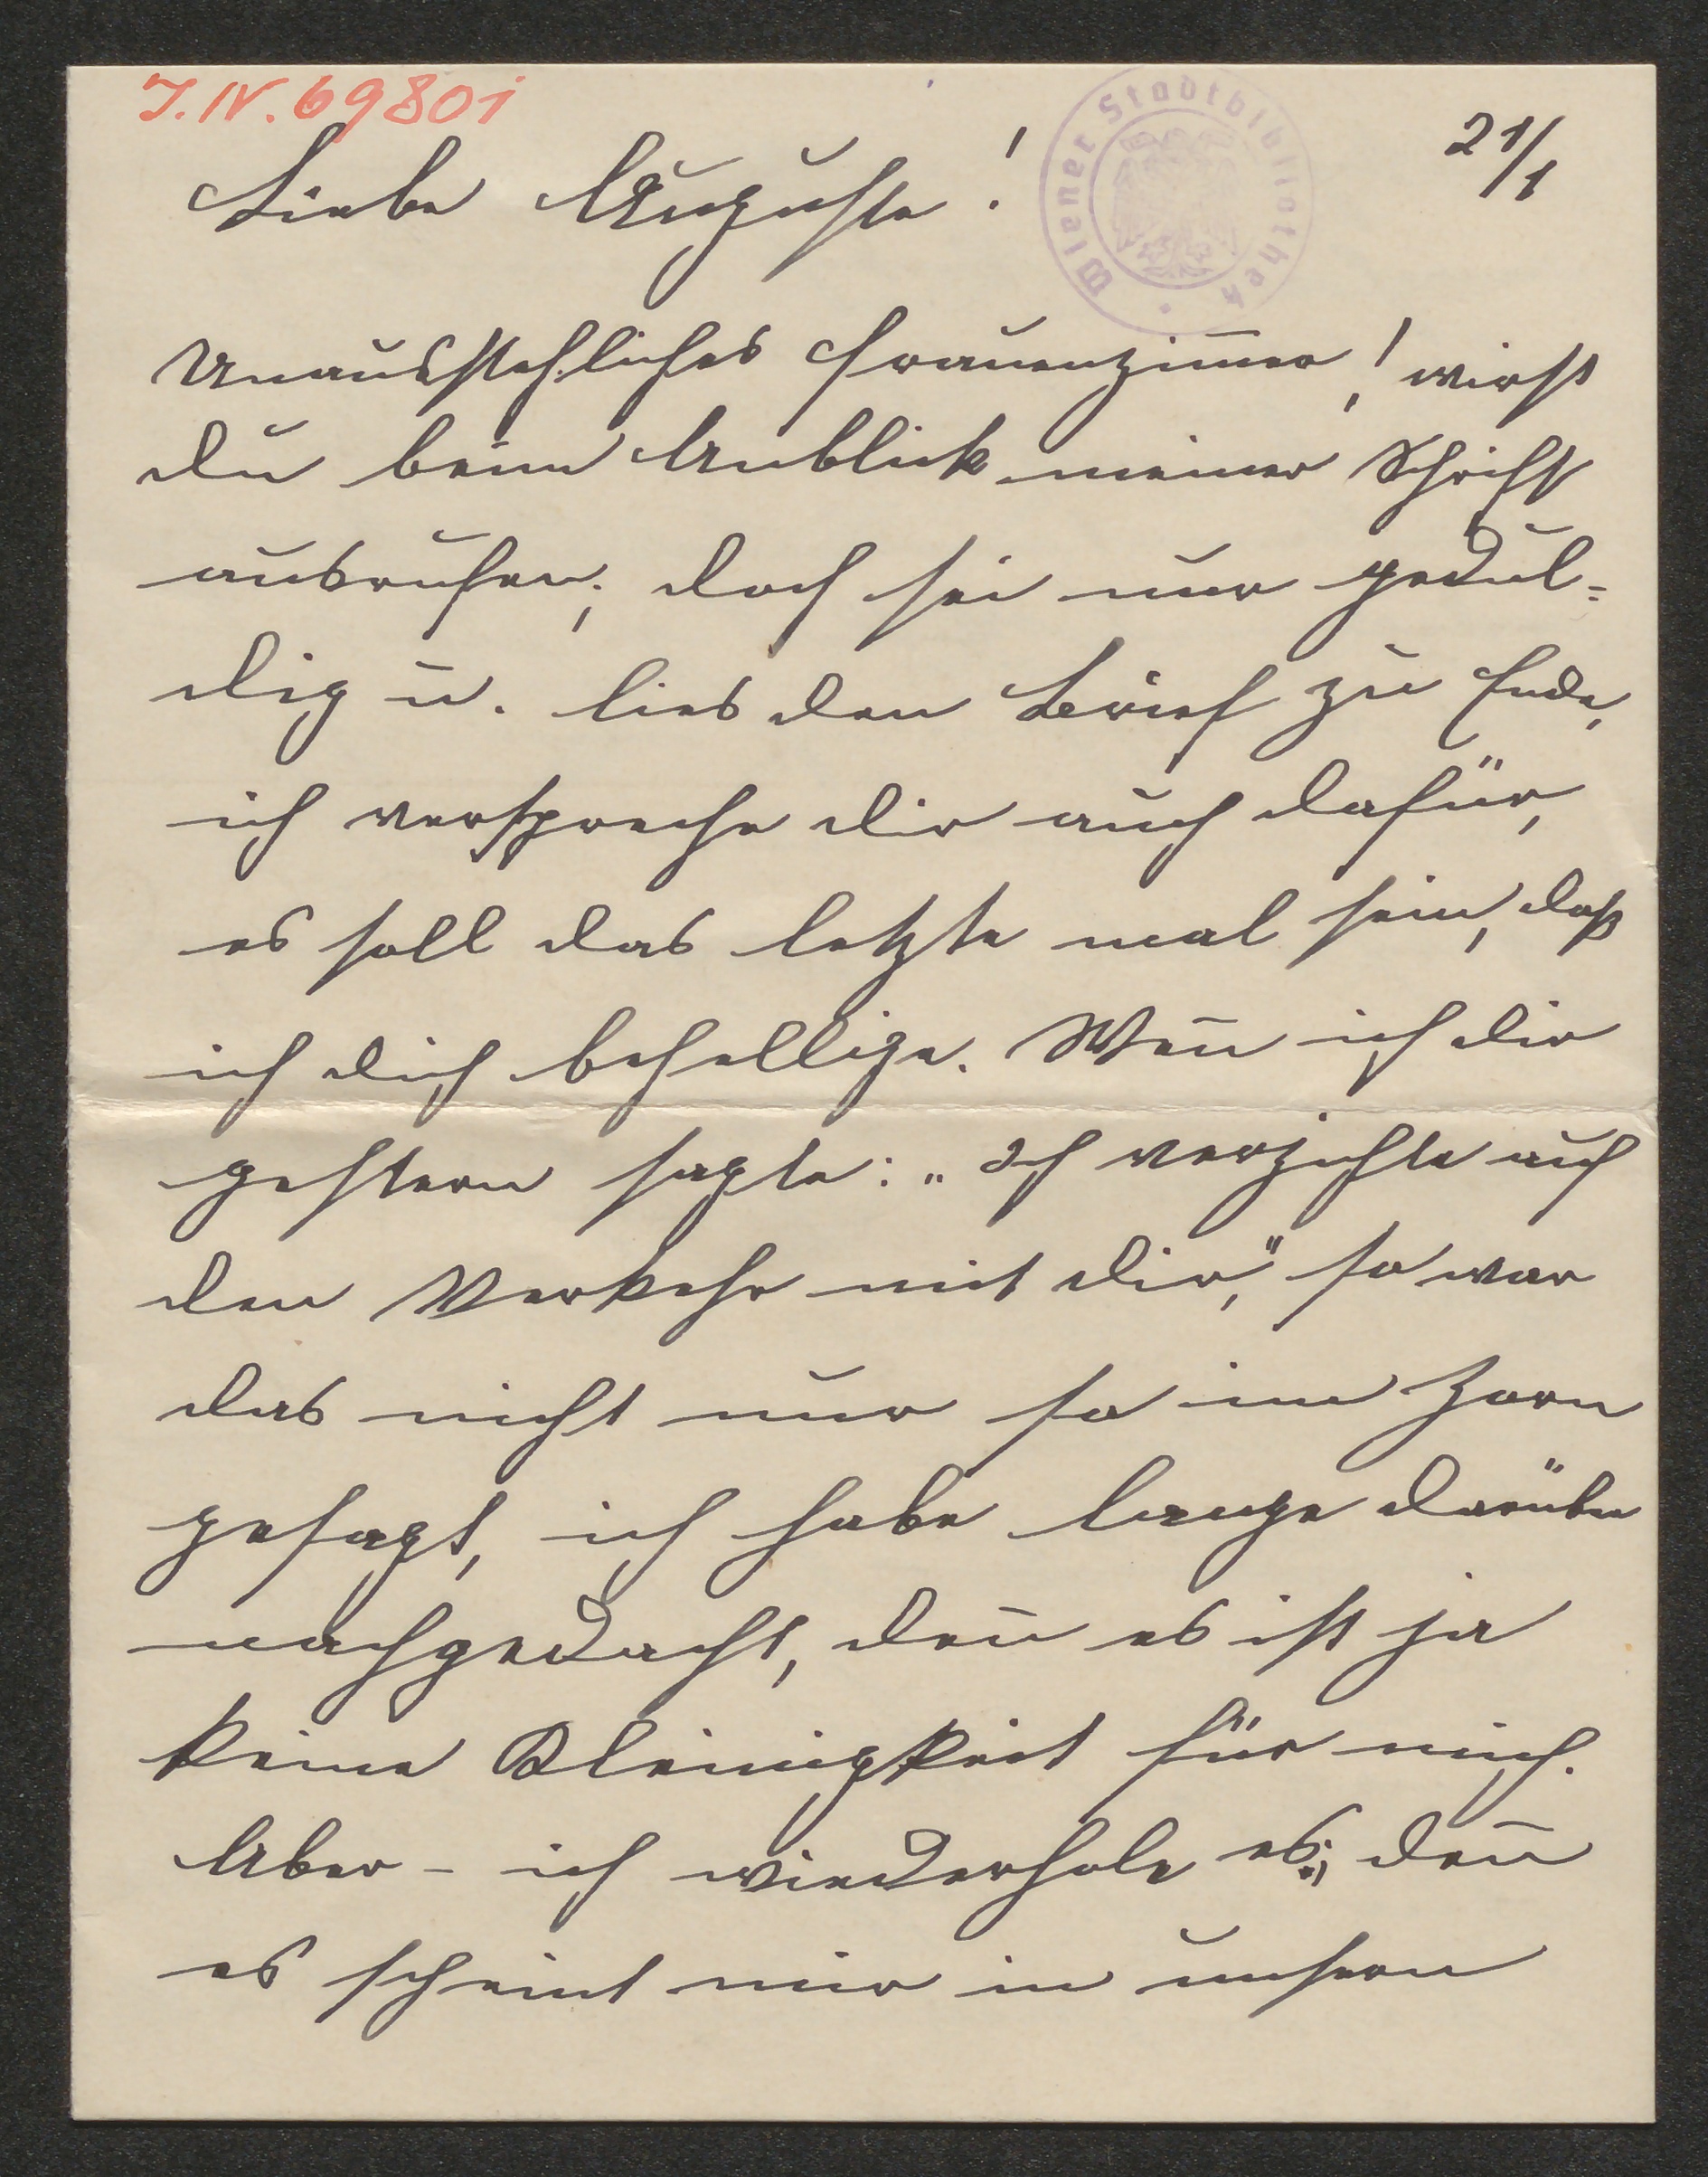 J.N. 69801
21/1
Wiener Stadtbibliothek
Liebe Auguste!
Unausstehliches Frauenzim̅er! wirst
du beim Anblick meiner Schrift
ausrufen; doch sei nur gedul=
dig u. lies den Brief zu Ende,
ich verspreche dir auch dafür,
es soll das letzte mal sein, daß
ich dich behellige. Wen̅ ich dir
gestern sagte: „Ich verzichte auf
den Verkehr mit dir,“ so war
das nicht nur so im Zorn
gesagt, ich habe lange darüber
nachgedacht, den̅ es ist ja
keine Kleinigkeit für mich.
Aber – ich wiederhole es; den̅
es scheint mir in unsern